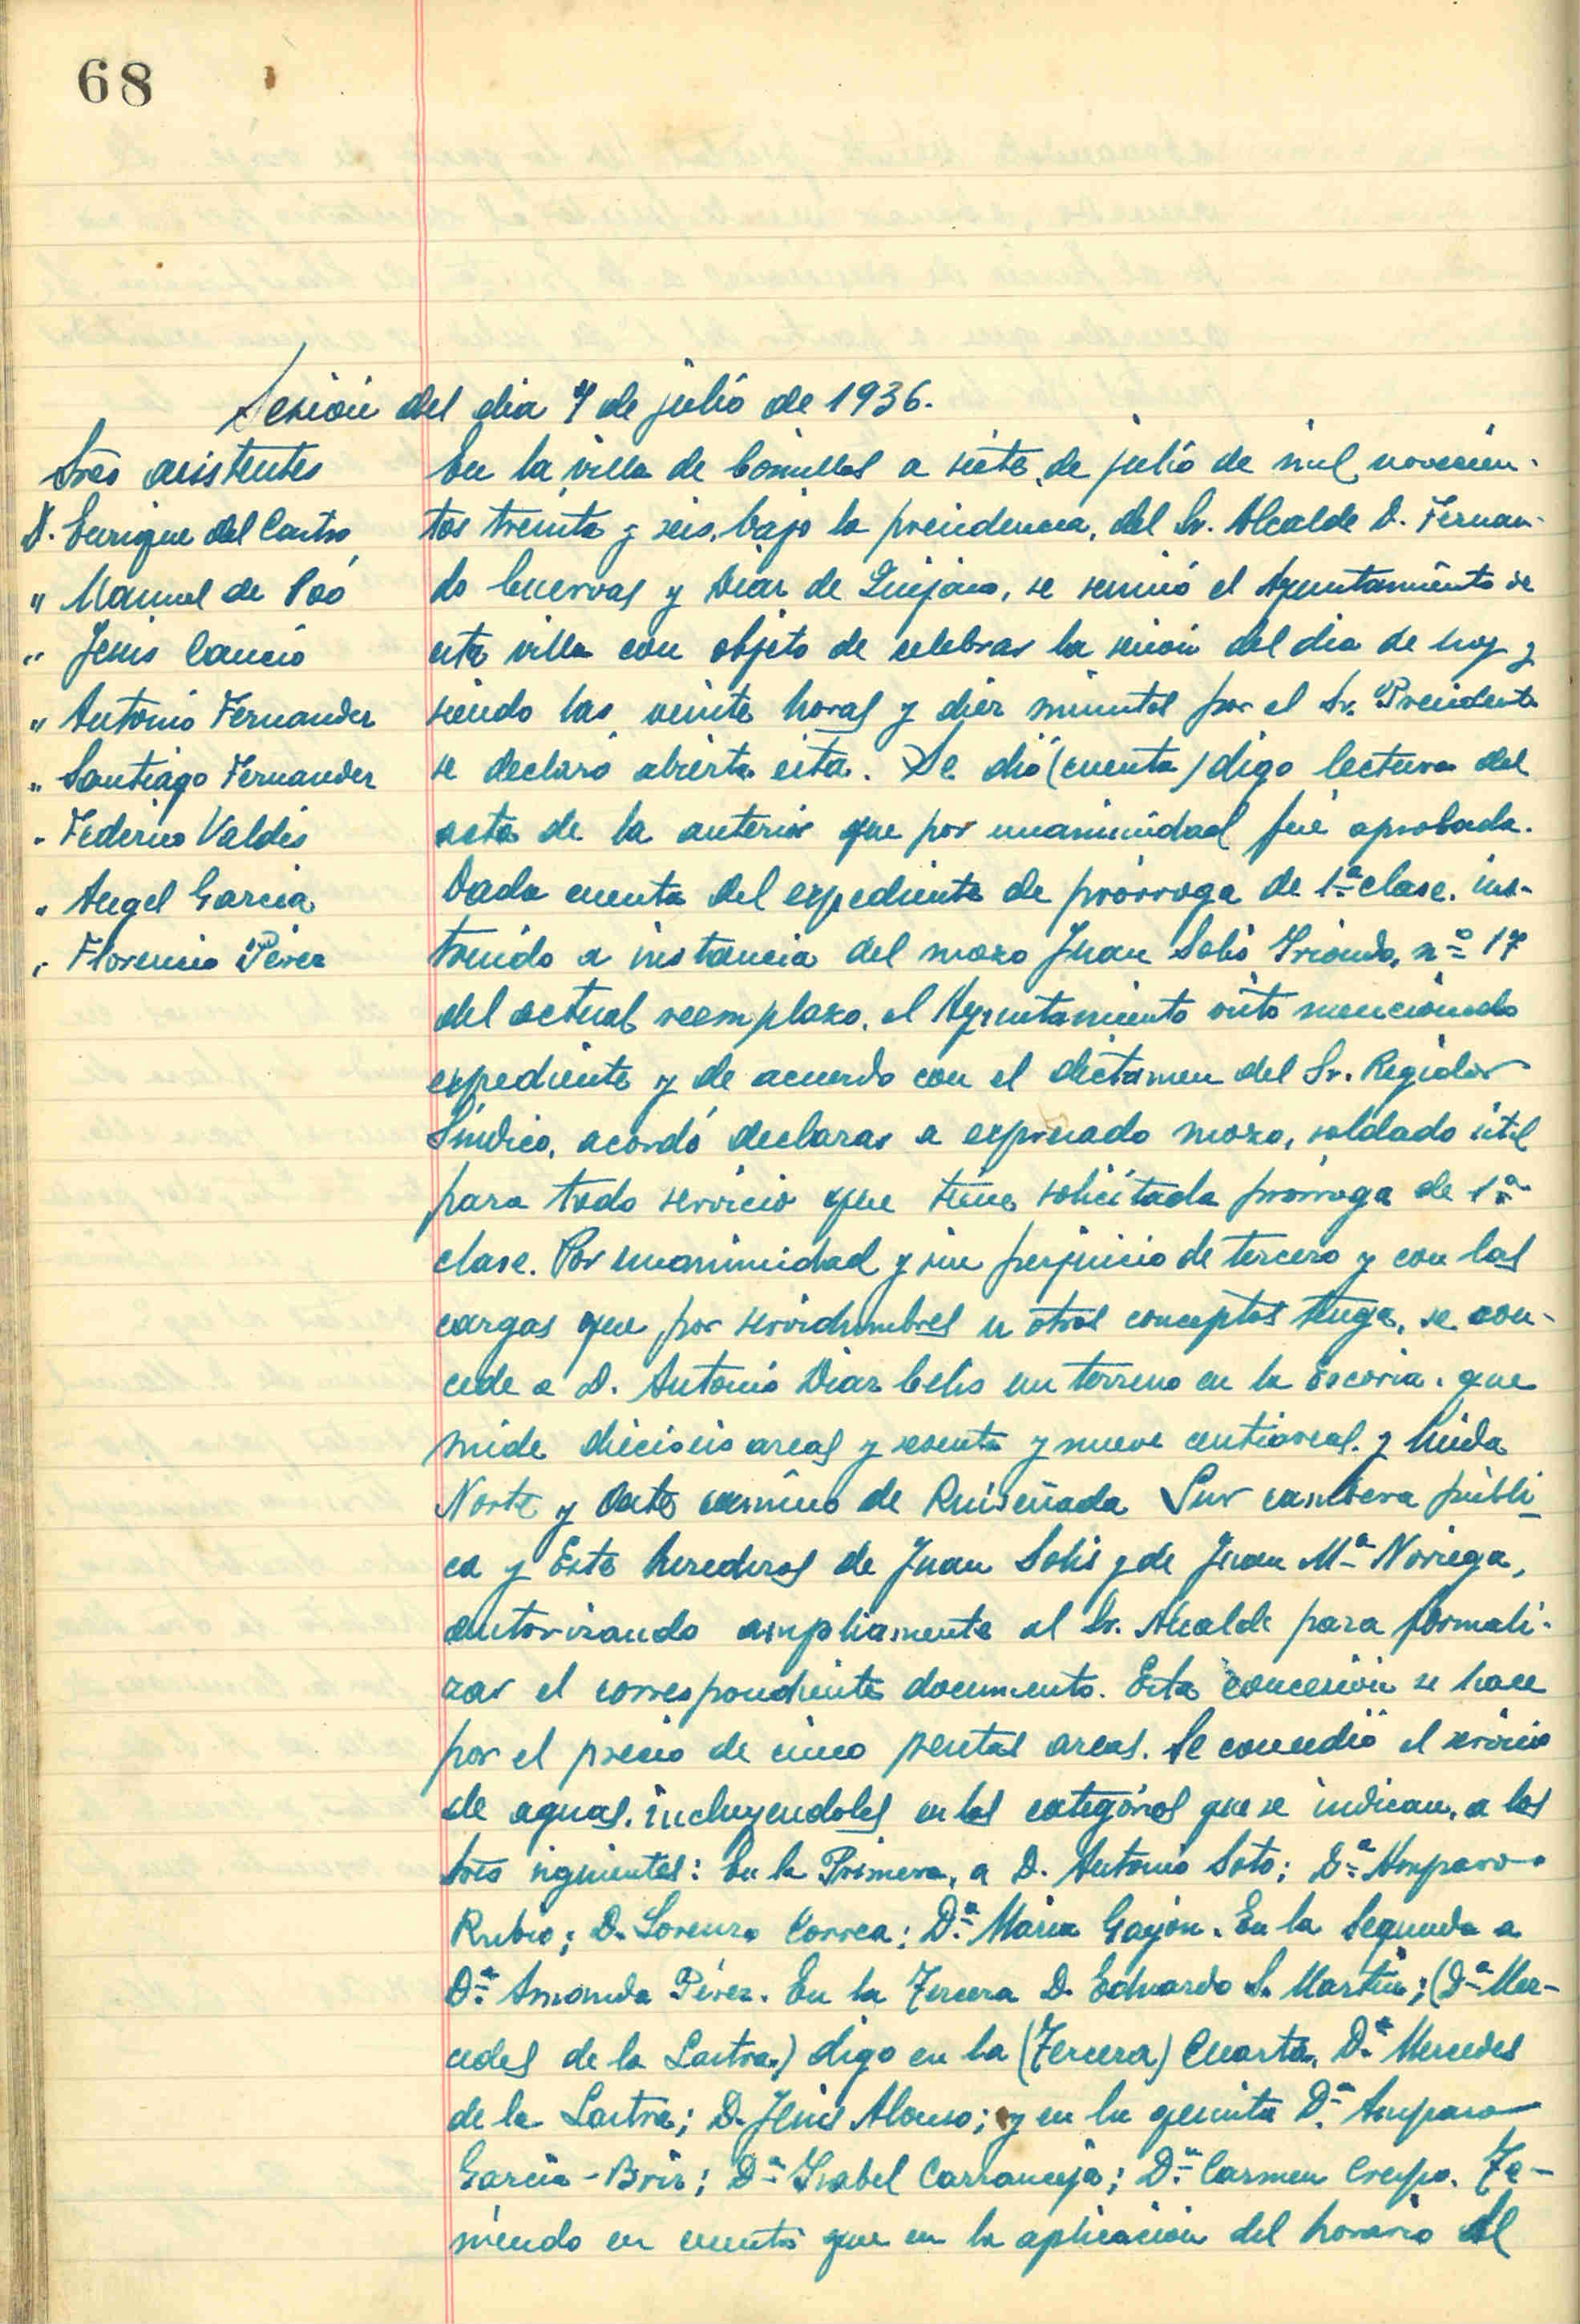 68
Sesión del dia 7 de julio de 1936.
Sres asistentes
D. Enrique del Castro
" Manuel de Poó
" Jesús Cancio
" Antonio Fernandez
" Santiago Fernandez
" Federico Valdés
" Angel Garcia
" Florencio Pérez
En la villa de Comillas a siete de julio de mil novecien-
tos treinta y seis, bajo la presidencia, del Sr. Alcalde D. Fernan-
do Cuervas y Diaz de Quijano, se reunió el Ayuntamiento de
esta villa con objeto de celebrar la sesión del dia de hoy y
siendo las veinte horas y diez minutos por el Sr. Presidente
se declaró abierta esta. Se dió (cuenta) digo lectura del
acta de la anterior que por unanimidad fué aprobada.
Dada cuenta del expediente de prórroga de 1ª clase, ins-
truido a instancia del mozo Juan Solis Iriondo, nº 17
del actual reemplazo, el Ayuntamiento visto mencionado
expediente y de acuerdo con el dictamen del Sr. Regidor
Síndico, acordó declarar a expresado mozo, soldado útil
para todo servicio que tiene solicitada prórroga de 1ª
clase. Por unanimidad y sin perjuicio de tercero y con las
cargas que por servidumbres u otros conceptos tenga, se con-
cede a D. Antonio Diaz Celis un terreno en la Escoria, que
mide dieciseis areas y sesenta y nueve centiareas, y linda
Norte y Oeste camino de Ruiseñada Sur cambera públi-
ca y Este herederos de Juan Solis y de Juan Mª Noriega,
autorizando ampliamente al Sr. Alcalde para formali-
zar el correspondiente documento. Esta concesión se hace
por el precio de cinco pesetas areas. Se concedió el servicio
de aguas, incluyendoles en las categorias que se indican, a los
Sres siguientes: En la Primera, a D. Antonio Soto; Dª Amparo
Rubio; D. Lorenzo Correa; Dª Maria Gayón. En la Segunda a
Dª Amanda Pérez. En la Tercera D. Eduardo S. Martin; (Dª Mer-
cedes de la Lastra) digo en la (Tercera) Cuarta, Dª Mercedes
de la Lastra; D. Jesús Alonso; y en la quinta Dª Amparo
Garcia-Briz; Dª Isabel Carranceja; Dª Carmen Crespo. Te-
niendo en cuenta que en la aplicación del horario del